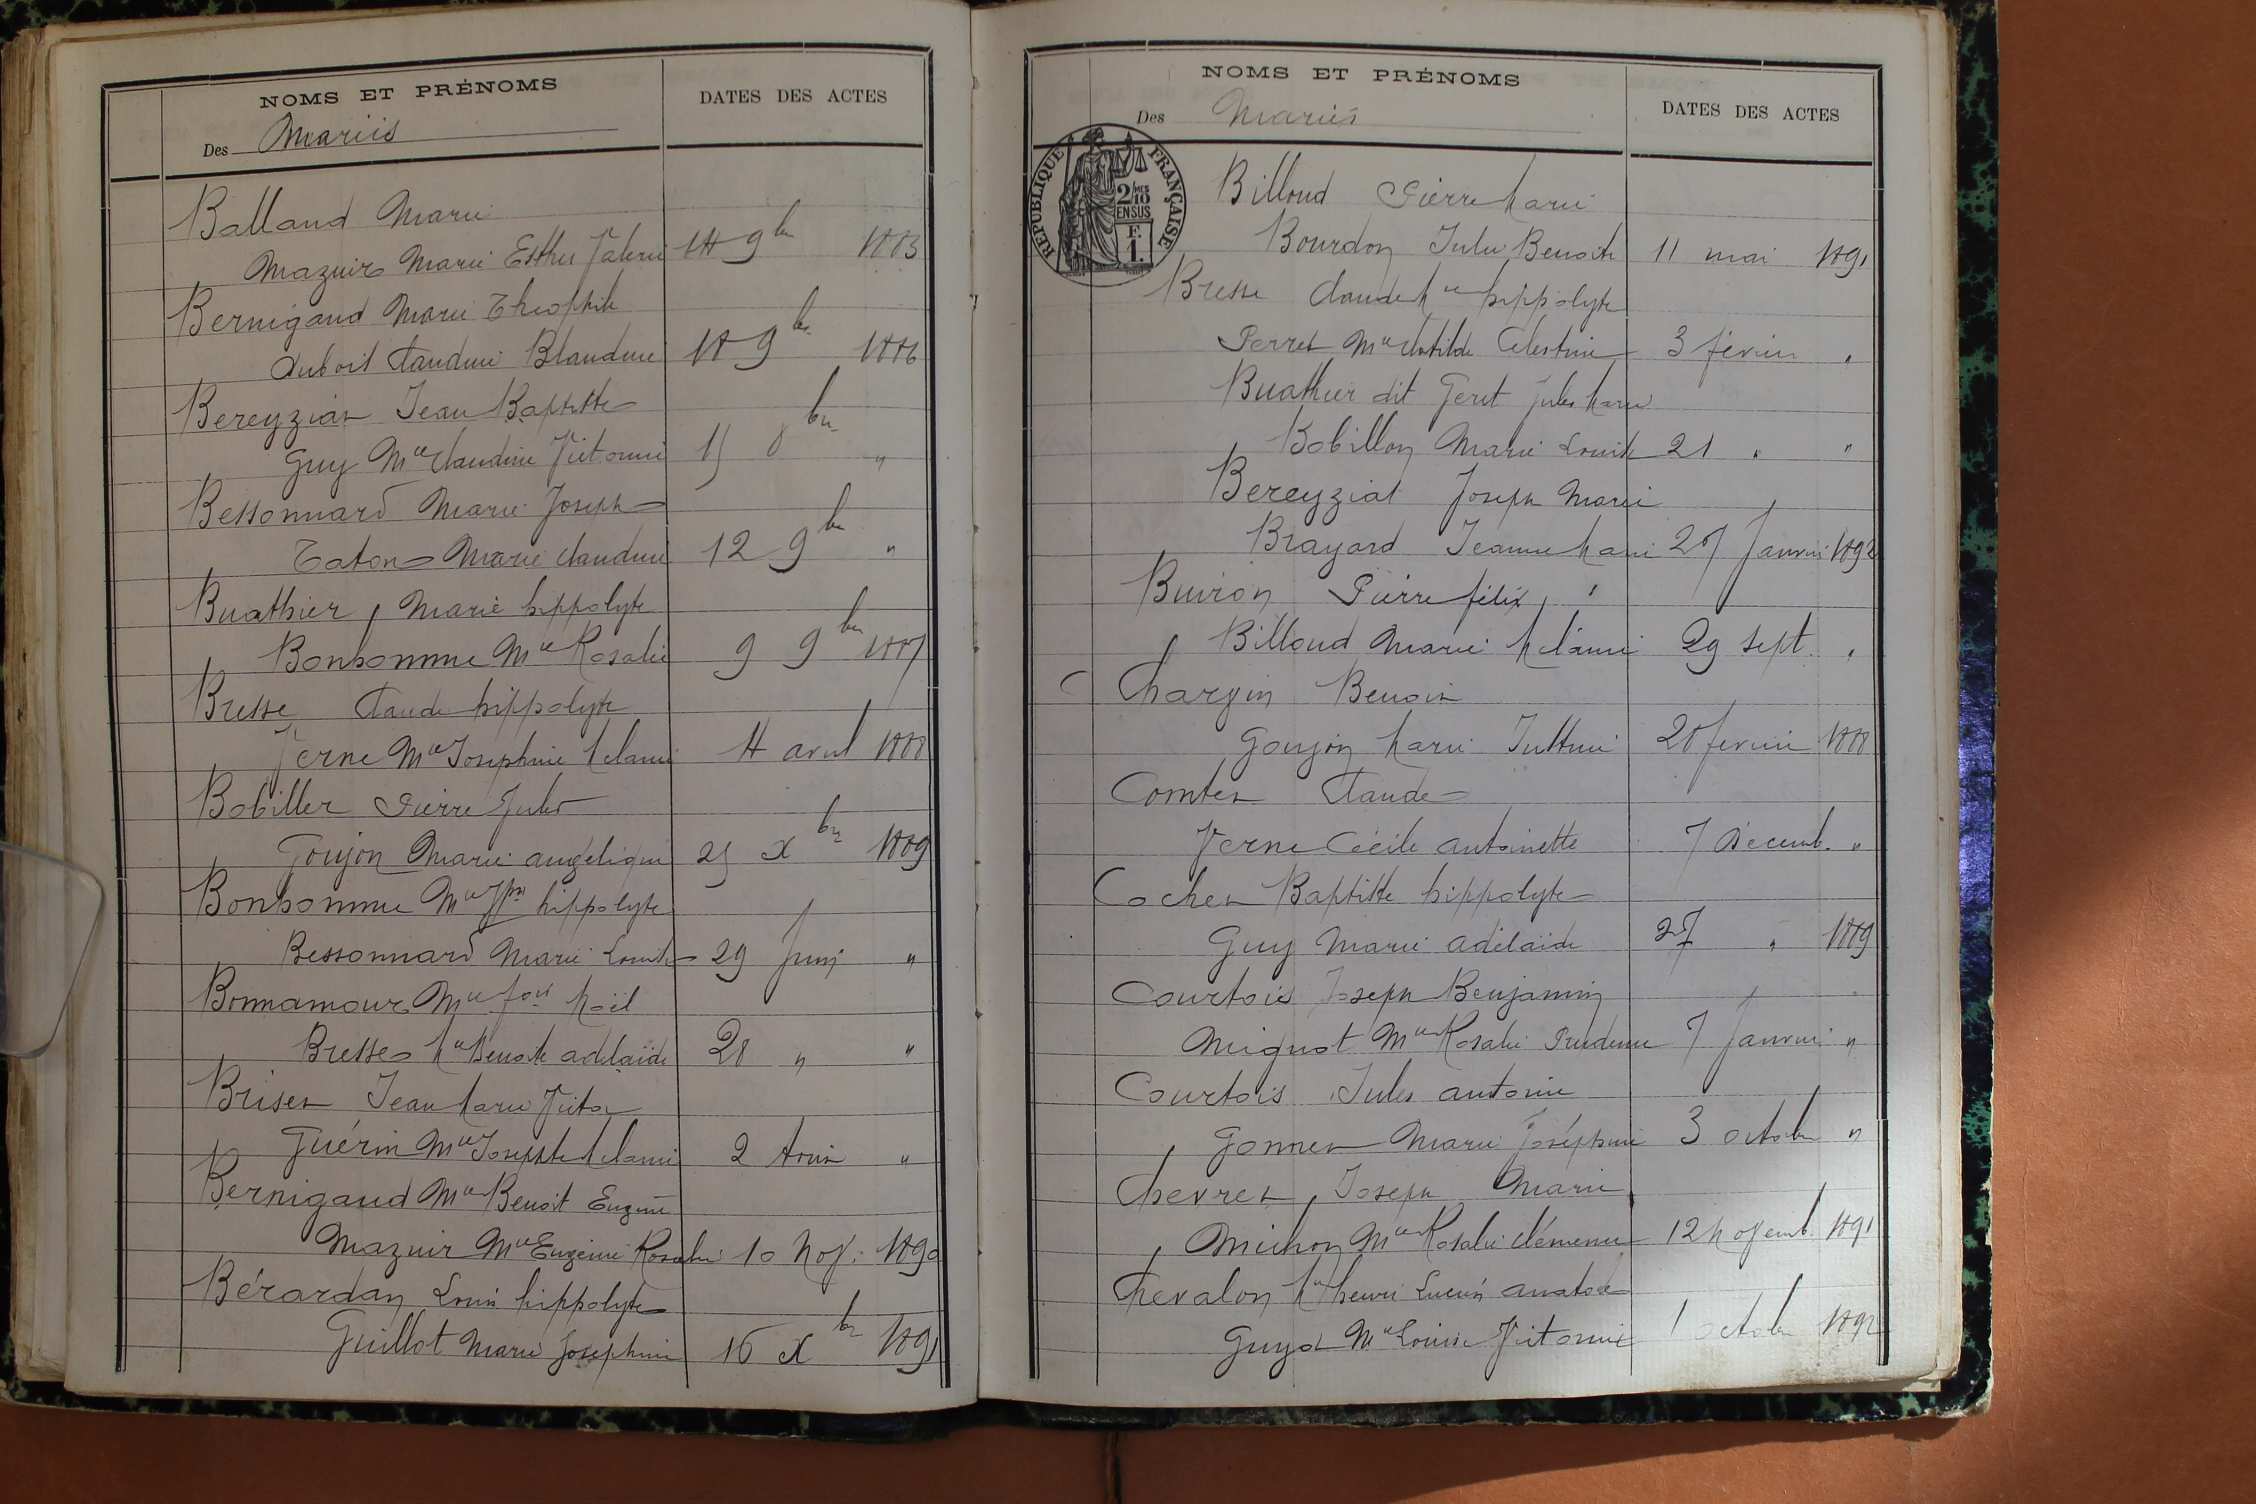 NOMS ET PRÉNOMS
DATES DES ACTES
Des Mariés
Balland Marie
Mazuir Marie Esther Valerie 14 9bre 1883
Bernigaud Marie Théophile
Dubois Claudine Blandine 18 9bre 1886
Bereyziat Jean Baptiste
Guy Mie Claudine Victorine 15 8bre "
Bessonnard Marie Joseph
Caton Marie Claudine 12 9bre "
Buathier Marie hippolyte
Bonhomme Mie Rosalie 9 9bre 1887
Bresse Claude hippolyte
Verne Mie Joséphine Mélanie 4 avril 1888
Bobillet Pierre Jules
Goujon Marie angélique 25 Xbre 1889
Bonhomme Mie Jph hippolyte
Bessonnard Marie Louise 29 Juin "
Bonnamour Mie fois Noël
Bresse Mie Benoite adélaïde 28 " "
Briset Jean Marie Victor
Guérin Mie Josephte Mélanie 2 "
Bernigaud Mie Benoit Eugène
Mazuir Mie Eugénie Rosalie 10 Nov. 1890
Bérardan Louis hippolyte
Guillot Marie Josephine 16 Xbre 1891
NOMS ET PRÉNOMS
DATES DES ACTES
Des Mariés
RÉPUBLIQUE FRANÇAISE
2/10MES
EN SUS
F.
1.
Billoud Pierre Marie
Bourdon Julie Benoite 11 mai 1891
Bresse Claude Mie hippolyte
Perret Mie Clotilde Célestine 3 février "
Buathier dit Geret Jules Marie
Bobillon Marie Louise 21 " "
Bereyziat Joseph Marie
Brayard Jeanne Marie 27 Janvier 1892
Buiron Pierre félix
Billoud Marie Mélanie 29 Sept. "
C Chargin Benoit
Goujon Marie Justine 28 février 1888
Comtet Claude
Verne Cécile antoinette 7 Décemb. "
Cochet Baptiste hippolyte
Guy Marie adélaïde 27 " 1889
Courtois Joseph Benjamin
Mignot Mie Rosalie Prudence 7 Janvier "
Courtois Jules antoine
Gonnet Marie Joséphine 3 octobre "
Chevret Joseph Marie
Michon Mie Rosalie Clémence 12 Novemb. 1891
Chevalon Mie henri Lucien anatole
Guyot Mie Louise Victorine 1 octobre 1892